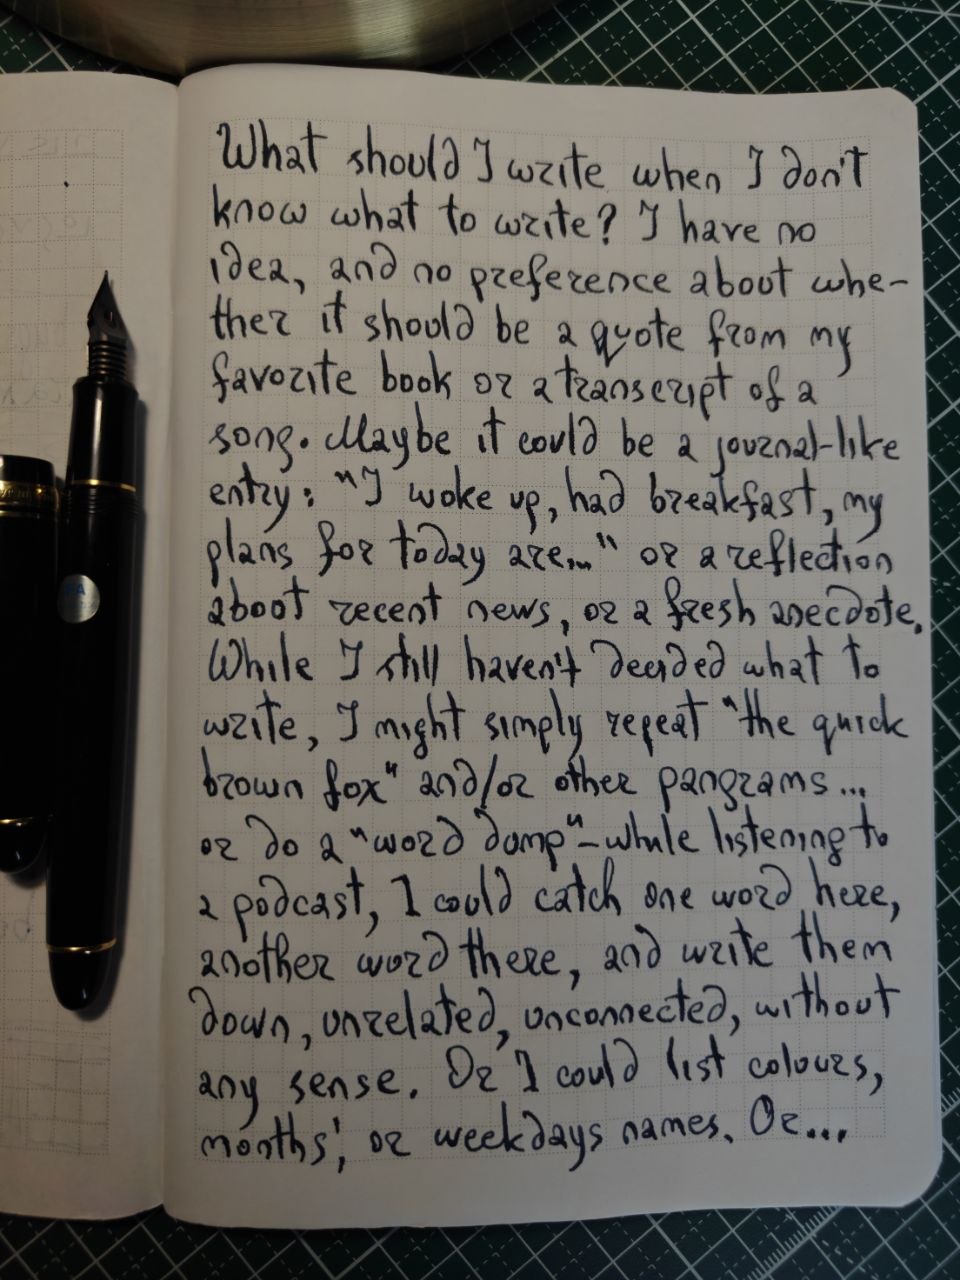 What should I write when I don't
know what to write? I have no
idea, and no preference about whe-
ther it should be a quote from my
favorite book or a transcript of a
song. Maybe it could be a journal-like
entry: "I woke up, had breakfast, my
plans for today are..." or a reflection
about recent news, or a fresh anecdote.
While I still haven't decided what to
write, I might simply repeat "the quick
brown fox" and/or other pangrams...
or do a "word dump" – while listening to
a podcast, I could catch one word here,
another word there, and write them
down, unrelated, unconnected, without
any sense. Or I could list colours,
months', or weekdays names. Or...